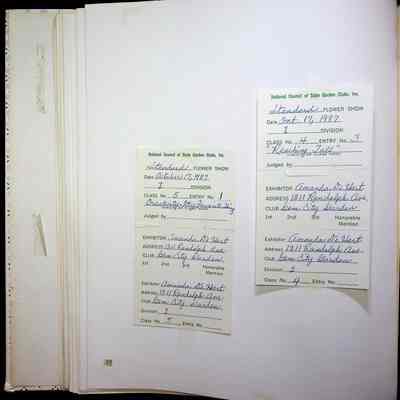 National Council of State Garden Clubs, Inc.
Standard FLOWER SHOW
Date October 17, 1987
I DIVISION
CLASS NO. 5 ENTRY NO. 1
Judged by
EXHIBITOR Amanda DeHart
ADDRESS 1811 Randolph Ave.
CLUB Gem City Garden
1st 2nd 3rd Honorable
Mention
Exhibitor Amanda DeHart
Address 1811 Randolph Ave.
Club Gem City Garden
Division I
Class No. 5 Entry No.
National Council of State Garden Clubs, Inc.
Standard FLOWER SHOW
Date Oct 17, 1987
I DIVISION
CLASS NO. 4 ENTRY NO. 3
Judged by
EXHIBITOR Amanda DeHart
ADDRESS 1811 Randolph Ave.
CLUB Gem City Garden
1st 2nd 3rd Honorable
Mention
EXHIBITOR Amanda DeHart
ADDRESS 1811 Randolph Ave.
CLUB Gem City Garden
Division I
Class No. 4 Entry No.